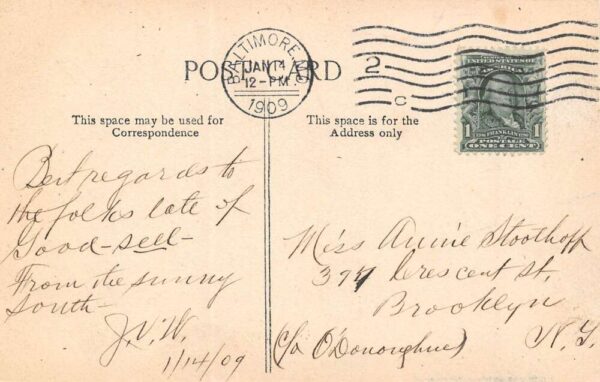 POST CARD
BALTIMORE, MD.
JAN 14
12-PM
1909
2
C
UNITED STATES OF
AMERICA
1 FRANKLIN 1
POSTAGE
ONE CENT
This space may be used for
Correspondence
This space is for the
Address only
Best regards to
the folks late of
Good-sell-
From the sunny
South-
J.V.W.
1/14/09
Miss Annie Stoothoff
397 Crescent St,
Brooklyn
(c/o O'Donoghue) N.Y.